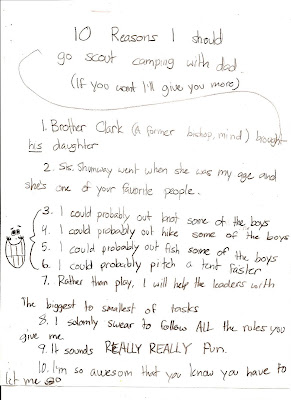 10 Reasons I should
go scout camping with dad
(If you want I'll give you more)
1. Brother Clark (A former bishop, mind) brought
his daughter
2. Sis. Shumway went when she was my age and
she's one of your favorite people.
3. I could probably out knot some of the boys
4. I could probably out hike some of the boys
5. I could probably out fish some of the boys
6. I could probably pitch a tent faster
7. Rather than play, I will help the leaders with
The biggest to smallest of tasks
8. I solomly swear to follow ALL the rules you
give me.
9. It sounds REALLY REALLY fun.
10. I'm so awesom that you know you have to
let me go